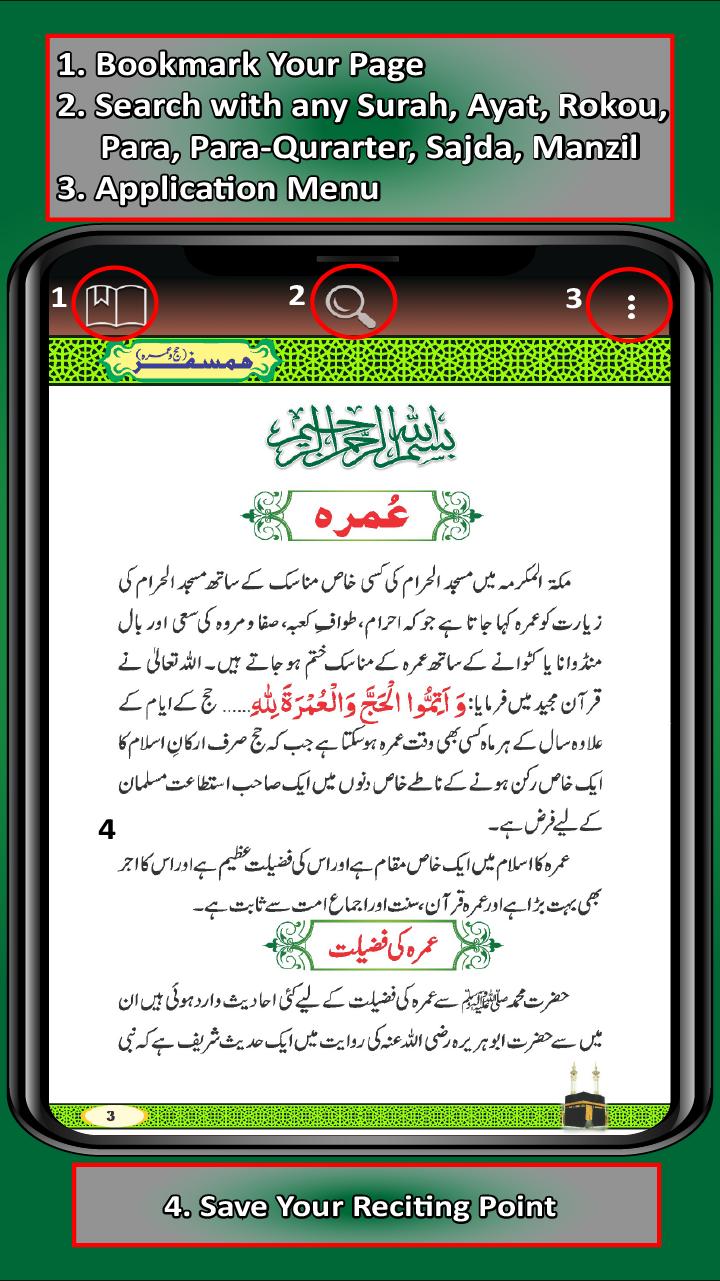 1. Bookmark Your Page
2. Search with any Surah, Ayat, Rokou,
Para, Para-Qurarter, Sajda, Manzil
3. Application Menu
1
2
3
ہمسفر (حج و عمرہ)
بسم اللہ الرحمن الرحیم
عُمرہ
مکۃ المکرمہ میں مسجد الحرام کی کسی خاص مناسک کے ساتھ مسجد الحرام کی
زیارت کو عمرہ کہا جاتا ہے جو کہ احرام، طوافِ کعبہ، صفا و مروہ کی سعی اور بال
منڈوانا یا کٹوانے کے ساتھ عمرہ کے مناسک ختم ہو جاتے ہیں۔ اللہ تعالیٰ نے
قرآن مجید میں فرمایا: وَ اَتِمُّوا الْحَجَّ وَالْعُمْرَةَ لِلّٰهِ...... حج کے ایام کے
علاوہ سال کے ہر ماہ کسی بھی وقت عمرہ ہو سکتا ہے جب کہ حج صرف ارکانِ اسلام کا
ایک خاص رکن ہونے کے ناطے خاص دنوں میں ایک صاحب استطاعت مسلمان
کے لیے فرض ہے۔
4
عمرہ کا اسلام میں ایک خاص مقام ہے اور اس کی فضیلت عظیم ہے اور اس کا اجر
بھی بہت بڑا ہے اور عمرہ قرآن، سنت اور اجماع امت سے ثابت ہے۔
عمرہ کی فضیلت
حضرت محمد ﷺ سے عمرہ کی فضیلت کے لیے کئی احادیث وارد ہوئی ہیں ان
میں سے حضرت ابو ہریرہ رضی اللہ عنہ کی روایت میں ایک حدیث شریف ہے کہ نبی
3
4. Save Your Reciting Point